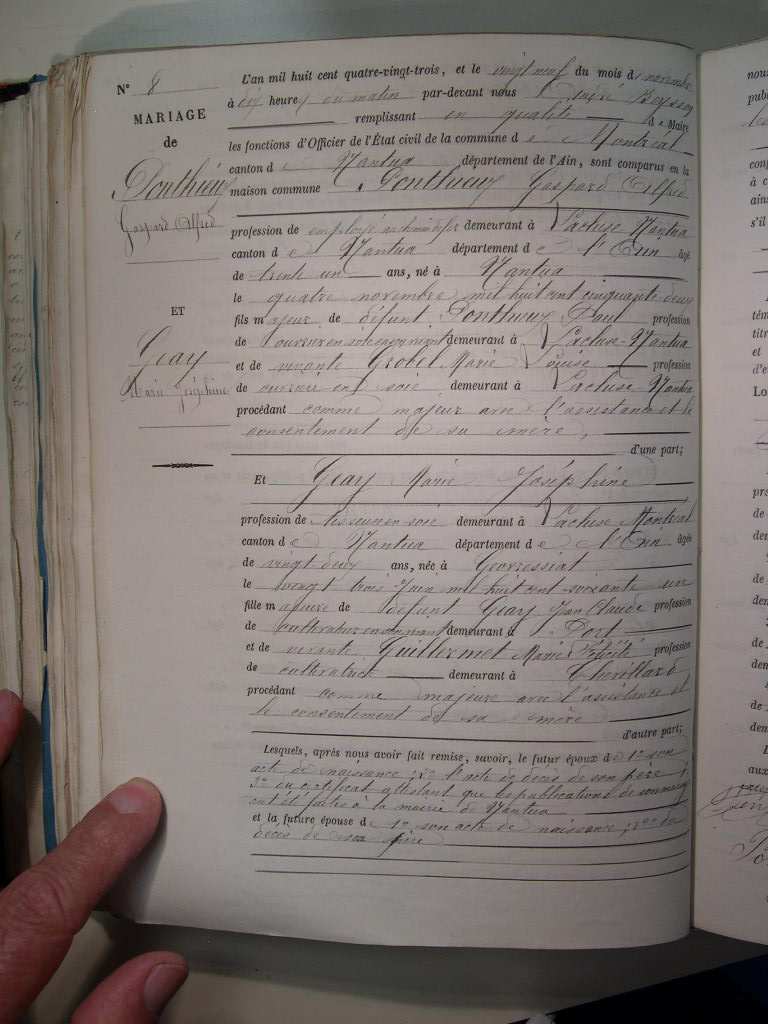 N° 8
MARIAGE
de
Ponthieux
Gaspard Alfred
ET
Géay
Marie Joséphine
L'an mil huit cent quatre-vingt-trois, et le vingt neuf du mois de novembre
à dix heures du matin par-devant nous
remplissant en qualité de Maire
les fonctions d'Officier de l'État civil de la commune de Montréal
canton de Nantua, département de l'Ain, sont comparus en la
maison commune Ponthieux Gaspard Alfred
profession de employé demeurant à Lacluse Nantua
canton de Nantua département de l'Ain âgé
de trente un ans, né à Nantua
le quatre novembre mil huit cent cinquante deux
fils majeur de défunt Ponthieux Paul profession
de demeurant à Lacluse-Nantua
et de vivante Grobet Marie Louise profession
de ouvrière en soie demeurant à Lacluse-Nantua
procédant comme majeur avec l'assistance et le
consentement de sa mère,
d'une part;
Et Géay Marie Joséphine
profession de tisseuse en soie demeurant à Lacluse Montréal
canton de Nantua département de l'Ain âgée
de vingt deux ans, née à Gevressiat
le vingt trois Juin mil huit cent soixante un
fille majeure de défunt Géay Jean Claude profession
de cultivateur en son vivant demeurant à Port
et de vivante Guillermet Marie Félicité profession
de cultivatrice demeurant à Chevillard
procédant comme majeure avec l'assistance et
le consentement de sa mère
d'autre part;
Lesquels, après nous avoir fait remise, savoir, le futur époux de 1° son
acte de naissance; 2° l'acte de décès de son père;
3° du certificat attestant que les publications de son mariage
ont été faites à la mairie de Nantua
et la future épouse de 1° son acte de naissance; 2° de
décès de son père